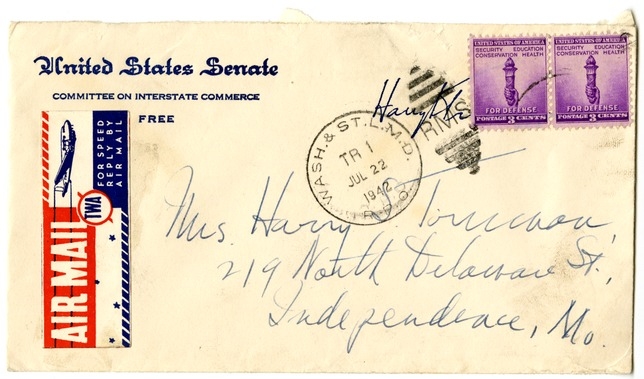 United States Senate
COMMITTEE ON INTERSTATE COMMERCE
FREE
FOR SPEED
REPLY BY
AIR MAIL
TWA
AIR MAIL
WASH. & ST. L. M. D.
TR 1
JUL 22
1942
R.P.O.
RMS
Harry
UNITED STATES OF AMERICA
SECURITY EDUCATION
CONSERVATION HEALTH
FOR DEFENSE
POSTAGE 3 CENTS
UNITED STATES OF AMERICA
SECURITY EDUCATION
CONSERVATION HEALTH
FOR DEFENSE
POSTAGE 3 CENTS
Mrs. Harry S. Truman
219 North Delaware St.,
Independence, Mo.